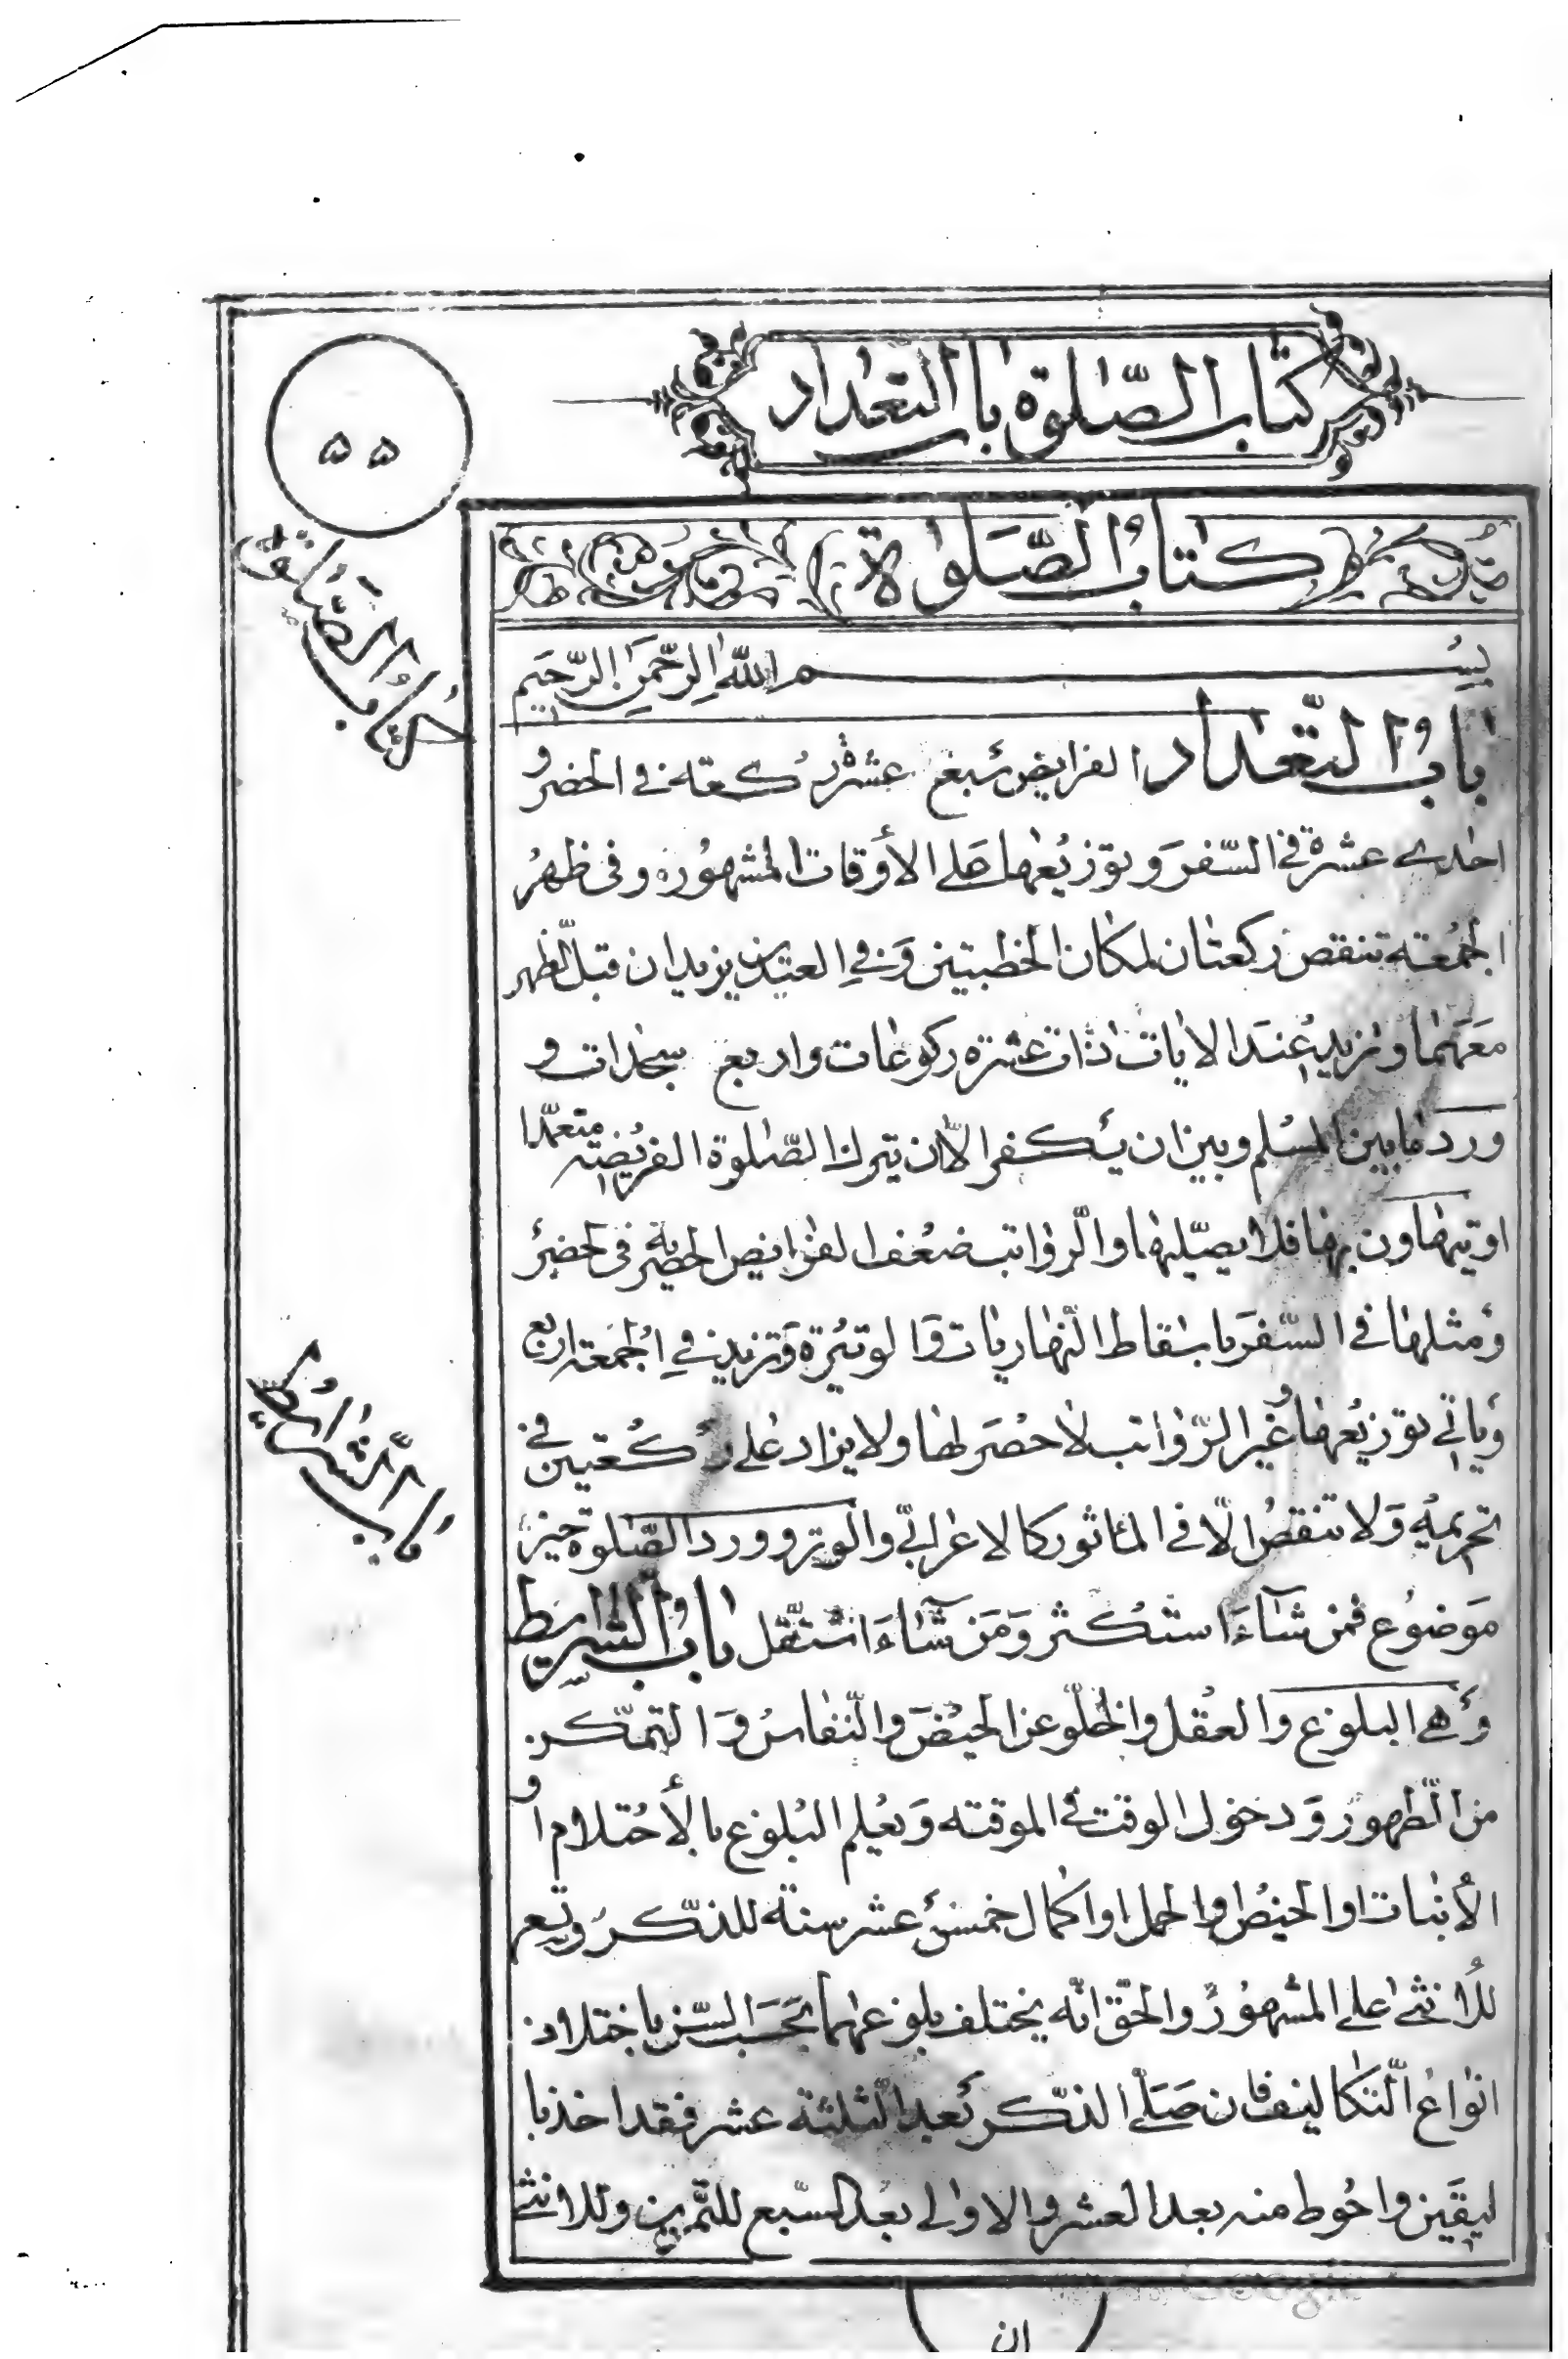 كتاب الصّلوة باب التعداد
۵۵
كتاب الصّلوة
كتاب الصَّلوٰة
بسم الله الرّحمن الرّحيم
باب التّعداد الفرايض سبع عشرة ركعة في الحضر و
احدى عشرة في السّفر و توزيعها على الأوقات المشهورة و في ظهر
الجمعة تنقص ركعتان لمكان الخطبتين و في العيدين يزيدان قبل الظهر
معهما و نزيد عند الايات ذات عشرة ركوعات و اربع سجدات و
ورد ما بين المسلم و بين ان يكفر الّا ان يترك الصّلوة الفريضة متعمّدا
او يتهاون بها فلا يصلّيها و الرّواتب ضعف الفرايض الحضرية في الحضر
و مثلها في السّفر باسقاط النّهاريات و الوتيرة و تزيد في الجمعة اربع
و ياتي توزيعها و غير الرّواتب لا حصر لها و لا يزاد على ركعتين في
تحريمة و لا تنقص الّا في المأثور كالاعرابيّ و الوتر و ورد الصّلوة خير
موضوع فمن شاء استكثر و من شاء استقل باب الشرايط
باب الشّرايط
و هي البلوغ و العقل و الخلوّ عن الحيض و النّفاس و التمكّن
من الطّهور و دخول الوقت في الموقتة و يعلم البلوغ بالأحتلام او
الأنبات او الحيض او الحمل او اكمال خمس عشر سنة للذّكر و تسع
للانثى على المشهور و الحقّ انّه يختلف بلوغهما بحسب السّن باختلاف
انواع التّكاليف فان صلّى الذّكر بعد الثلثة عشر فقد اخذ با
ليقين و احوط منه بعد العشر و الاولى بعد السّبع للتّمرين و للانثى
ان
Google